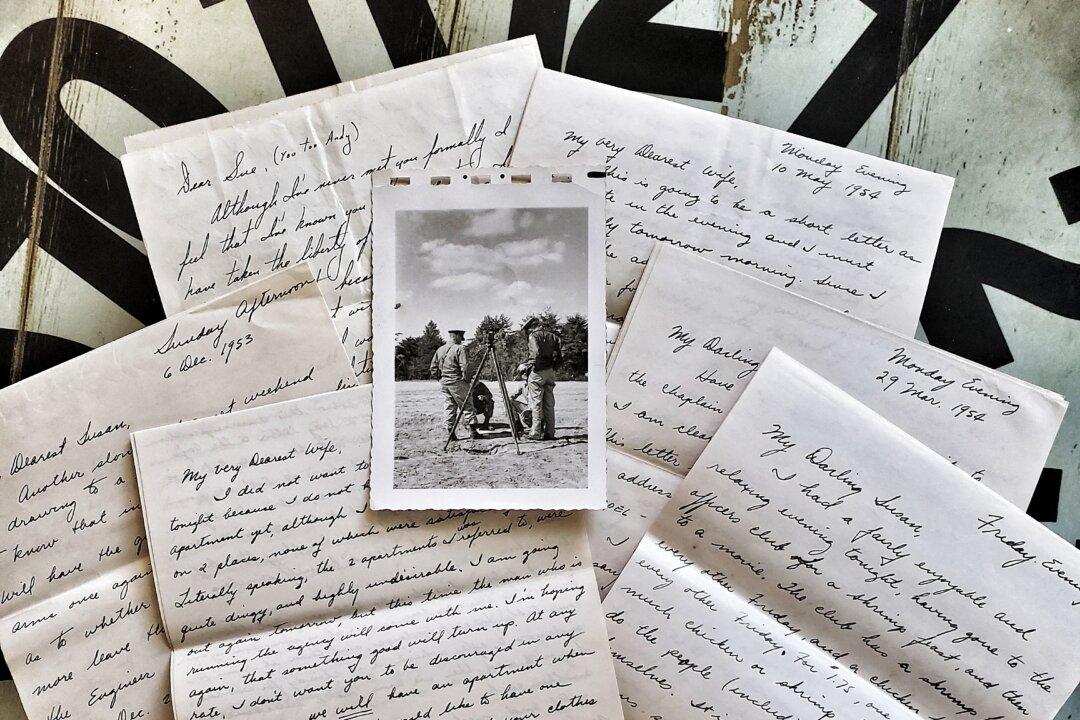 Dear Sue, (You too Andy)
Although I've never met you formally I
feel that I've known you
have taken the liberty of
Monday Evening
10 May 1954
My very Dearest Wife,
This is going to be a short letter as
in the evening and I must
tomorrow morning. Since I
Sunday Afternoon
6 Dec. 1953
Dearest Susan,
Another
weekend
drawing to a
know that in
will have the
arms once again
as to whether
more leave the
the Engineer
Dec.
My very Dearest Wife,
I did not want to
tonight because I do not
apartment yet, although I
on 2 places, none of which were
Literally speaking, the 2 apartments I referred to, were
quite dingy, and highly undesirable. I am going
out again tomorrow but this time the man who is
running the agency will come with me. I'm hoping
again, that something good will turn up. At any
rate, I don't want you to be discouraged in any
we will have an apartment when
like to have one
your clothes
Monday Evening
29 Mar. 1954
My Darling
Have
the chaplain
I am
This letter
address
Friday Evening
My Darling Susan,
I had a fairly enjoyable and
relaxing evening tonight, having gone to the
officers club for a shrimp feast, and then
to a movie. The club has a shrimp
every other Friday, and a chicken
every other Friday. For 1.75,
much chicken or shrimp
do the people (including